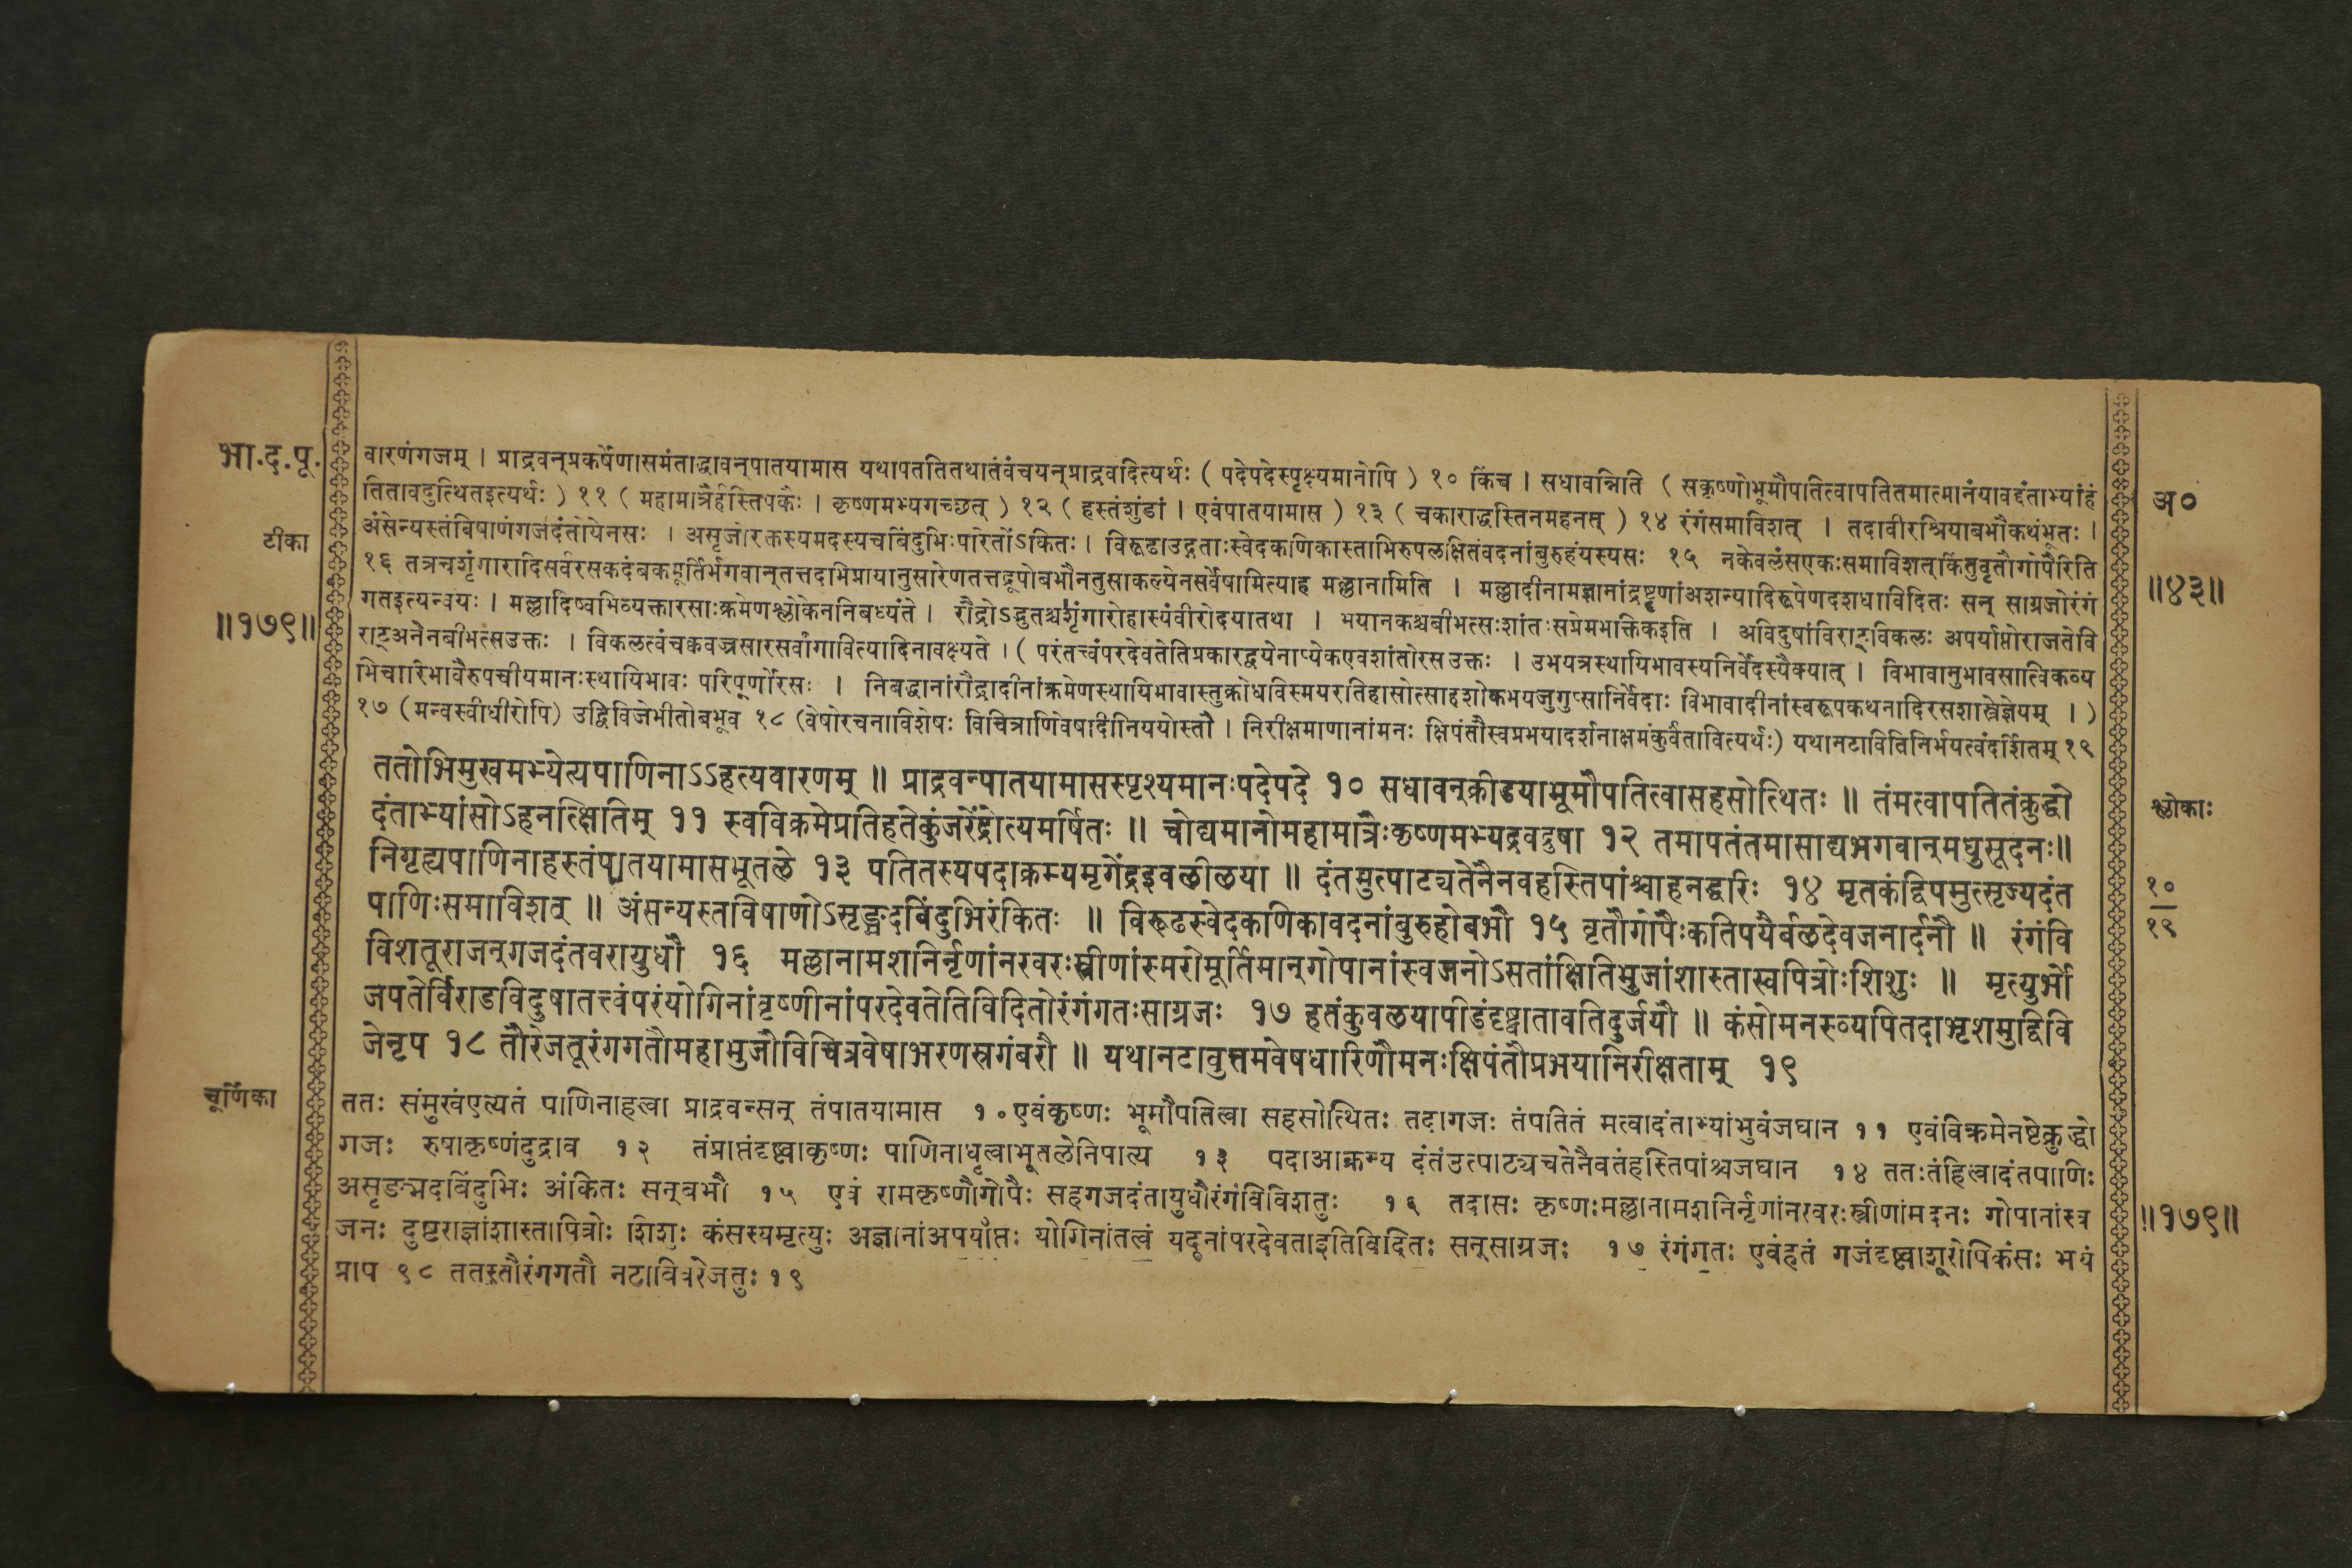 भा.द.पू.
टीका
॥१७९॥
वारणंगजम् । प्राद्रवन्प्रकर्षेणासमंताद्धावन्पातयामास यथापततितथातंवंचयन्प्राद्रवदित्यर्थः ( पदेपदेस्पृक्ष्यमानोपि ) १० किंच । सधावन्निति ( सकृष्णोभूमौपतित्वापतितमात्मानंयावद्दंताभ्यांहं
तितावदुत्थितइत्यर्थः ) ११ ( महामात्रैर्हस्तिपकैः । कृष्णमभ्यगच्छत् ) १२ ( हस्तंशुंडां । एवंपातयामास ) १३ ( चकाराद्धस्तिनमहनत् ) १४ रंगंसमाविशत् । तदावीरश्रियाबभौकथंभूतः ।
अंसेन्यस्तंविषाणंगजदंतोयेनसः । असृजोरक्तस्यमदस्यचबिंदुभिःपरितोंऽकितः । विरूढाउद्गताःस्वेदकणिकास्ताभिरुपलक्षितंवदनांबुरुहंयस्यसः १५ नकेवलंसएकःसमाविशत्किंतुवृतौगोपैरिति
१६ तत्रचशृंगारादिसर्वरसकदंबकमूर्तिर्भगवान्तत्तदाभिप्रायानुसारेणतत्तद्रूपोबभौनतुसाकल्येनसर्वेषामित्याह मल्लानामिति । मल्लादीनामज्ञानांद्रष्टॄणांअशन्यादिरूपेणदशधाविदितः सन् साग्रजोरंगं
गतइत्यन्वयः । मल्लादिष्वभिव्यक्तारसाःक्रमेणश्लोकेननिबध्यंते । रौद्रोऽद्भुतश्चशृंगारोहास्यंवीरोदयातथा । भयानकश्चबीभत्सःशांतःसप्रेमभक्तिकइति । अविदुषांविराट्विकलः अपर्याप्तोराजतेवि
राट्अनेनबीभत्सउक्तः । विकलत्वंचक्कवज्रसारसर्वांगावित्यादिनावक्ष्यते । ( परंतत्त्वंपरदेवतेतिप्रकारद्वयेनाप्येकएवशांतोरसउक्तः । उभयत्रस्थायिभावस्यनिर्वेदस्यैक्यात् । विभावानुभावसात्विकव्य
भिचारिभावैरुपचीयमानःस्थायिभावः परिपूर्णोरसः । निबद्धानांरौद्रादीनांक्रमेणस्थायिभावास्तुक्रोधविस्मयरतिहासोत्साहशोकभयजुगुप्सानिर्वेदाः विभावादीनांस्वरूपकथनादिरसशास्त्रेज्ञेयम् । )
१७ (मन्वस्वीधीरोपि) उद्विविजेभीतोबभूव १८ (वेषोरचनाविशेषः विचित्राणिवेषादीनिययोस्तौ । निरीक्षमाणानांमनः क्षिपंतौस्वप्रभयादर्शनाक्षमंकुर्वंतावित्यर्थः) यथानटाविविनिर्भयत्वंदर्शितम् १९
ततोभिमुखमभ्येत्यपाणिनाऽऽहत्यवारणम् ॥ प्राद्रवन्पातयामासस्पृश्यमानःपदेपदे १० सधावन्क्रीडयाभूमौपतित्वासहसोत्थितः ॥ तंमत्वापतितंक्रुद्धो
दंताभ्यांसोऽहनत्क्षितिम् ११ स्वविक्रमेप्रतिहतेकुंजरेंद्रोत्यमर्षितः ॥ चोद्यमानोमहामात्रैःकृष्णमभ्यद्रवद्रुषा १२ तमापतंतमासाद्यभगवान्मधुसूदनः॥
निगृह्यपाणिनाहस्तंपातयामासभूतले १३ पतितस्यपदाक्रम्यमृगेंद्रइवलीलया ॥ दंतमुत्पाट्यतेनैनवहस्तिपांश्चाहनद्धरिः १४ मृतकंद्विपमुत्सृज्यदंत
पाणिःसमाविशत् ॥ अंसन्यस्तविषाणोऽसृङ्मदबिंदुभिरंकितः ॥ विरूढस्वेदकणिकावदनांबुरुहोबभौ १५ वृतौगोपैःकतिपयैर्बलदेवजनार्दनौ ॥ रंगंवि
विशतूराजन्गजदंतवरायुधौ १६ मल्लानामशनिर्नृणांनरवरःस्त्रीणांस्मरोमूर्तिमान्गोपानांस्वजनोऽसतांक्षितिभुजांशास्तास्वपित्रोःशिशुः ॥ मृत्युर्भो
जपतेर्विराडविदुषातत्त्वंपरंयोगिनांवृष्णीनांपरदेवतेतिविदितोरंगंगतःसाग्रजः १७ हतंकुवलयापीडंदृष्ट्वातावतिदुर्जयौ ॥ कंसोमनस्व्यपितदाभृशमुद्विवि
जेनृप १८ तौरेजतूरंगगतौमहाभुजौविचित्रवेषाभरणस्रगंबरौ ॥ यथानटावुत्तमवेषधारिणौमनःक्षिपंतौप्रभयानिरीक्षताम् १९
चूर्णिका
ततः संमुखंएत्यतं पाणिनाहत्वा प्राद्रवन्सन् तंपातयामास १० एवंकृष्णः भूमौपतित्वा सहसोत्थितः तदागजः तंपतितं मत्वादंताभ्यांभुवंजघान ११ एवंविक्रमेनष्टेक्रुद्धो
गजः रुषाकृष्णंदुद्राव १२ तंप्राप्तंदृष्ट्वाकृष्णः पाणिनाधृत्वाभूतलेनिपात्य १३ पदाआक्रम्य दंतंउत्पाट्यचतेनैवतंहस्तिपांश्चजघान १४ ततःतंहित्वादंतपाणिः
असृङ्मदबिंदुभिः अंकितः सन्बभौ १५ एवं रामकृष्णौगोपैः सहगजदंतायुधौरंगंविविशतुः १६ तदासः कृष्णःमल्लानामशनिर्नृणांनरवरःस्त्रीणांमदनः गोपानांस्व
जनः दुष्टराज्ञांशास्तापित्रोः शिशुः कंसस्यमृत्युः अज्ञानांअपर्याप्तः योगिनांतत्वं यदूनांपरदेवताइतिविदितः सन्साग्रजः १७ रंगंगतः एवंहतं गजंदृष्ट्वाशूरोपिकंसः भयं
प्राप १८ ततस्तौरंगगतौ नटाविवरेजतुः १९
अ०
॥४३॥
श्लोकाः
१०
१९
॥१७९॥